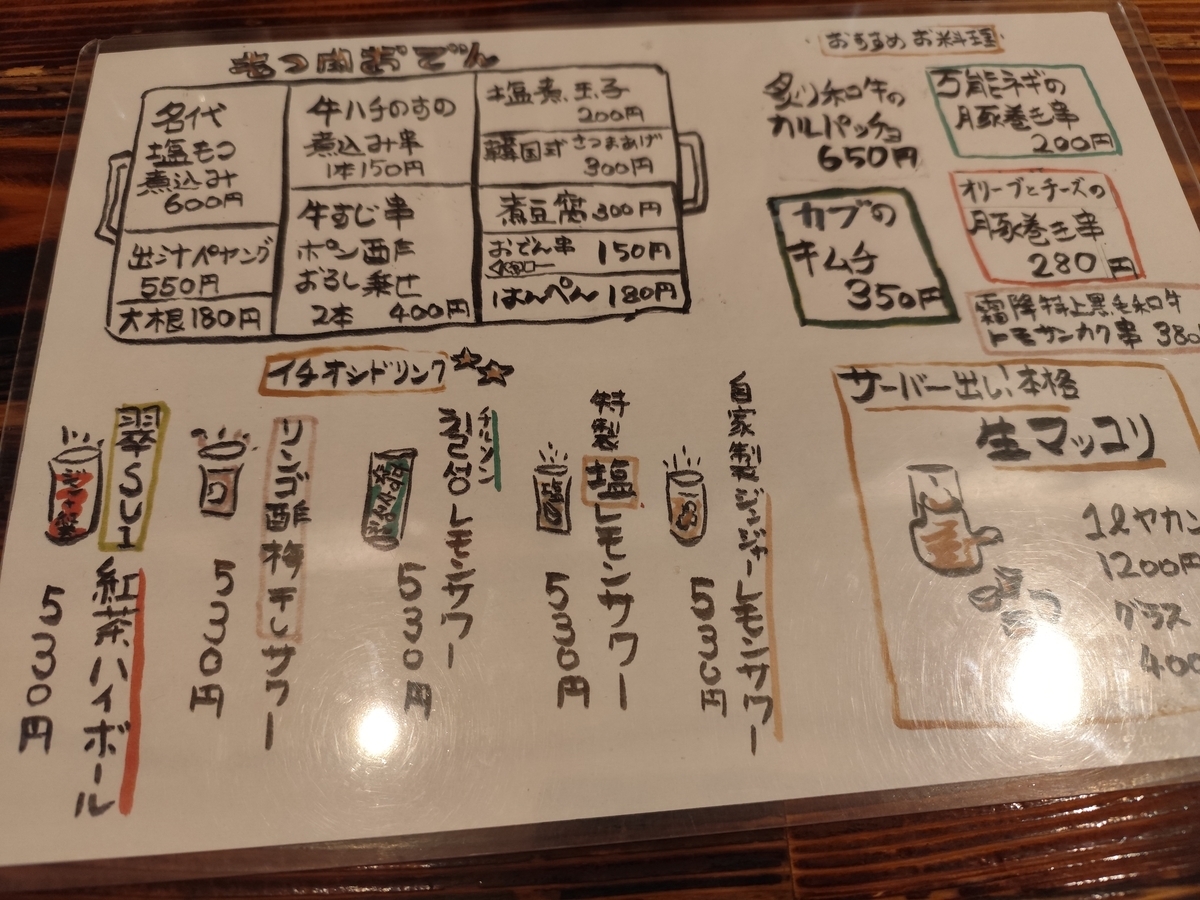 もつ肉おでん
名代
塩モツ
煮込み
600円
出汁ペヤング
550円
大根180円
牛ハチのすの
煮込み串
1本150円
牛すじ串
ポン酢
おろし乗せ
2本 400円
塩煮玉子
200円
韓国式さつまあげ
300円
煮豆腐300円
おでん串
150円
はんぺん180円
おすすめお料理
炙り和牛の
カルパッチョ
650円
カブの
キムチ
350円
万能ネギの
豚巻き串
200円
オリーブとチーズの
豚巻き串
280円
霜降特上黒毛和牛
トモサンカク串 380
イチオシドリンク
自家製ジンジャーレモンサワー
530円
特製塩レモンサワー
530円
チルソン
칠성レモンサワー
530円
リンゴ酢梅干しサワー
530円
翠SUI
紅茶ハイボール
530円
サーバー出し!本格
生マッコリ
1ℓヤカン
1200円
グラス
400